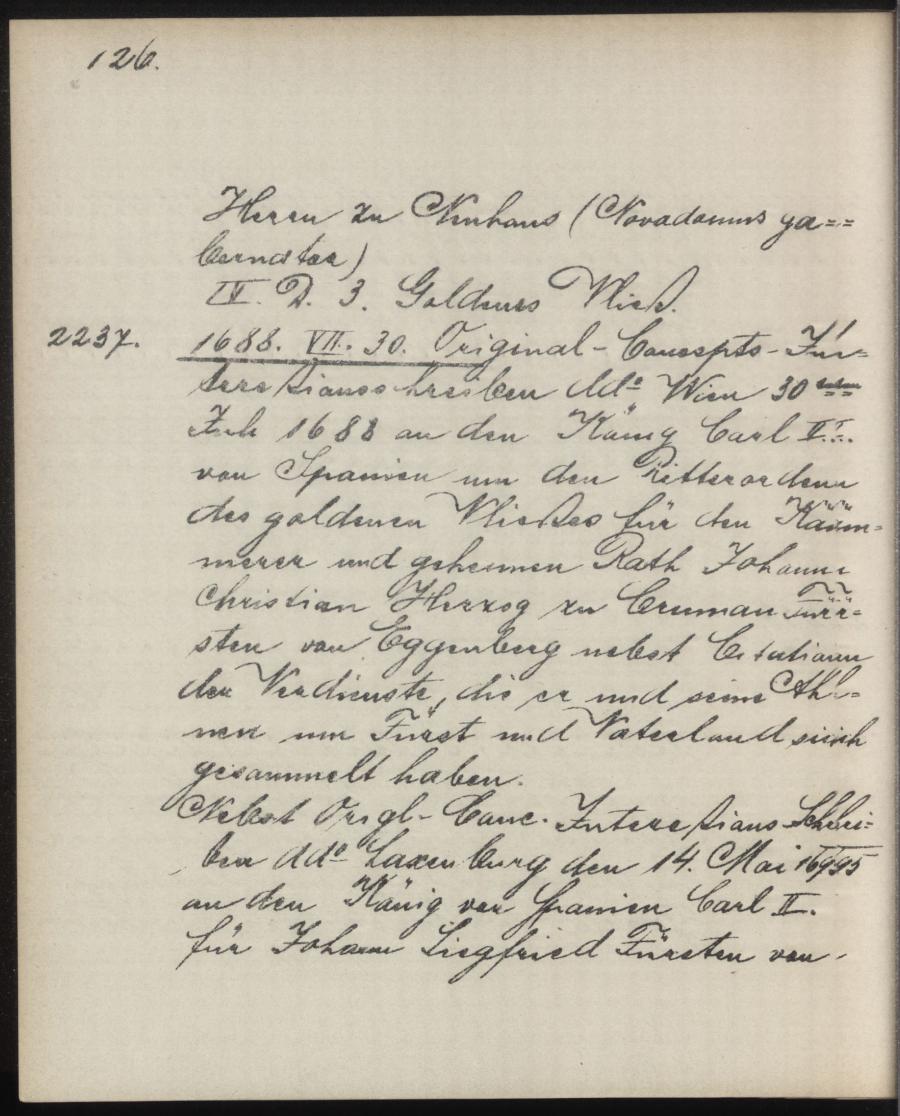 126.
Herrn zu Neuhaus (Novadomus ga==
bernator)
IV. D. 3. Goldenes Vließ.
2237. 1688. VII. 30. Original-Concepts-In=
terceßionsschreiben ddo Wien 30ten
Juli 1688 an den König Carl II.
von Spanien um den Ritterorden
des goldenen Vließes für den Käm=
merer und geheimen Rath Johann
Christian Herzog zu Crumau Für=
sten von Eggenberg nebst Citation
der Verdienste, die er und seine Ah=
nen um Fürst und Vaterland sich
gesammelt haben.
Nebst Origl-Conc. Interceßions-Schrei=
ben ddo Laxenburg den 14. Mai 1695
an den König von Spanien Carl II.
für Johann Siegfried Fürsten von